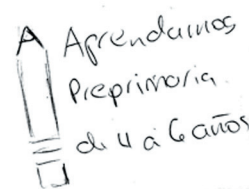 A Aprendamos
Preprimaria
de 4 a 6 años